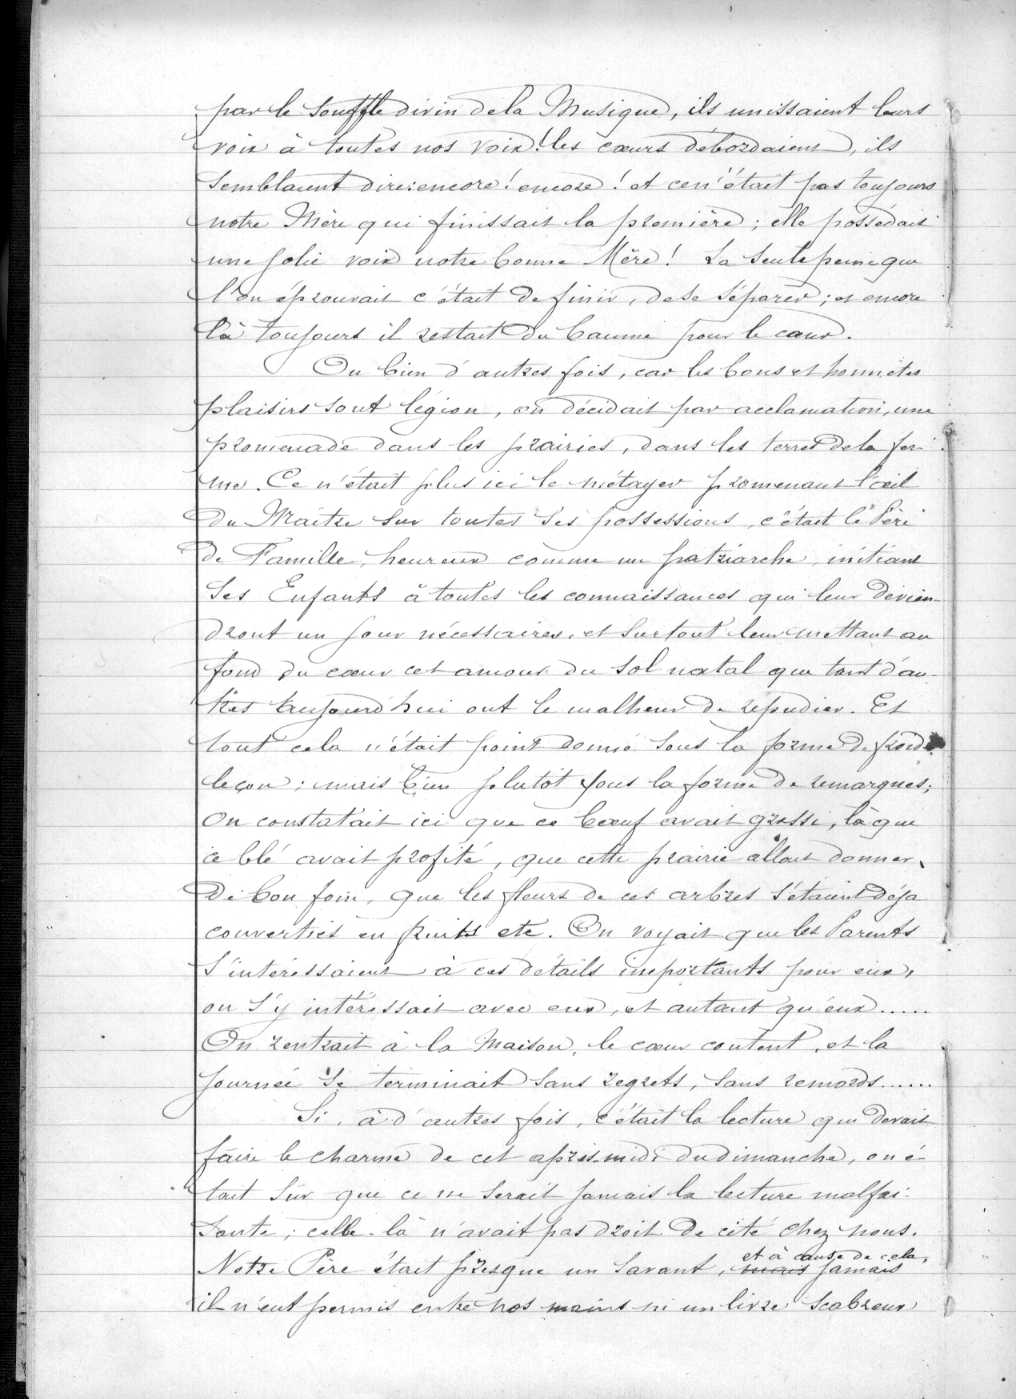 par le souffle divin de la Musique, ils unissaient leurs
voix à toutes nos voix! les cœurs débordaient, ils
semblaient dire: encore! encore! et ce n'était pas toujours
notre Mère qui finissait la première; elle possédait
une jolie voix notre bonne Mère! La seule peine que
l'on éprouvait c'était de finir, de se séparer; et encore
là toujours il restait du baume pour le cœur.
Ou bien d'autres fois, car les bons et honnêtes
plaisirs sont légion, on décidait par acclamation, une
promenade dans les prairies, dans les terres de la fer-
me. Ce n'était plus ici le métayer promenant l'œil
du Maître sur toutes ses possessions, c'était le Père
de Famille, heureux comme un patriarche, initiant
ses Enfants à toutes les connaissances qui leur devien-
dront un jour nécessaires, et surtout leur mettant au
fond du cœur cet amour du sol natal que tant d'au-
tres aujourd'hui ont le malheur de répudier. Et
tout cela n'était point donné sous la forme de froide
leçon; mais bien plutôt sous la forme de remarques;
on constatait ici que ce bœuf avait grossi, là que
ce blé avait profité, que cette prairie allait donner
de bon foin, que les fleurs de ces arbres s'étaient déjà
converties en fruits etc. On voyait que les Parents
s'intéressaient à ces détails importants pour eux,
on s'y intéressait avec eux, et autant qu'eux.....
On rentrait à la Maison, le cœur content, et la
journée se terminait sans regrets, sans remords......
Si, à d'autres fois, c'était la lecture qui devait
faire le charme de cet après-midi du dimanche, on é-
tait sûr que ce ne serait jamais la lecture malfai-
sante; celle-là n'avait pas droit de cité chez nous.
Notre Père était presque un savant, mais et à cause de cela, jamais
il n'eut permis entre nos mains ni un livre scabreux